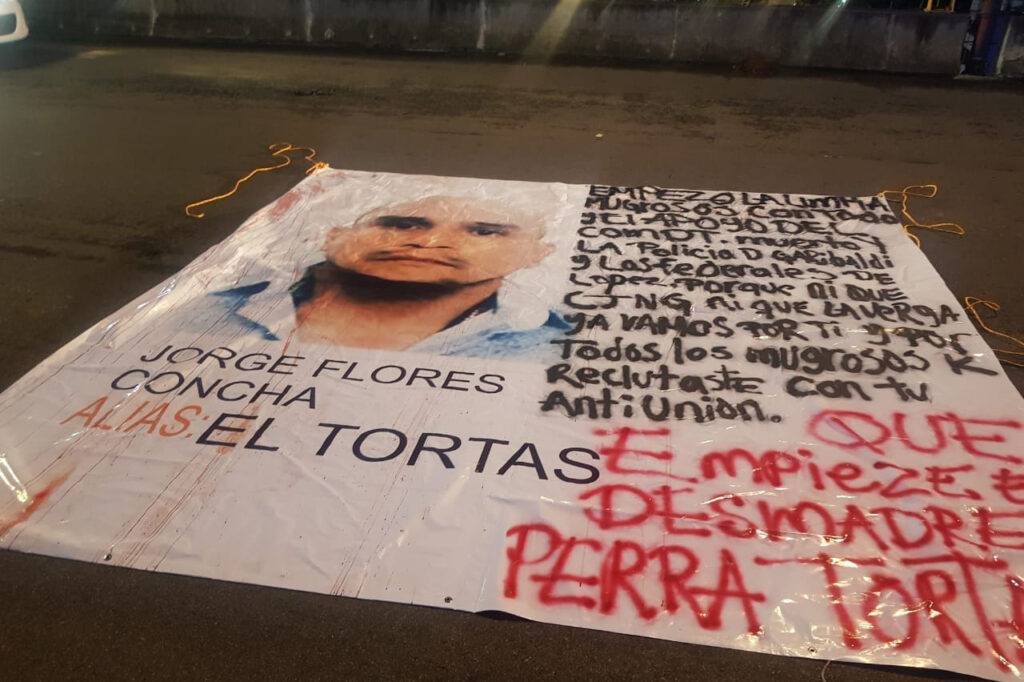 JORGE FLORES
CONCHA
ALIAS: EL TORTAS
EMPEZO LA LIMPIA
MUGROSOS CON TODO
y EL APOYO DEL
COMDT. muerto y
LA POLICIA D GARIBALDI
y LAS FEDERALES DE
LOPEZ. PORQUE NI QUE
CJNG Ni que LA VERGA
YA VAMOS POR Ti y POR
Todos los mugrosos K
Reclutaste con tu
Anti Unión.
QUE
Empieze E
DESMADRE
PERRA TORT